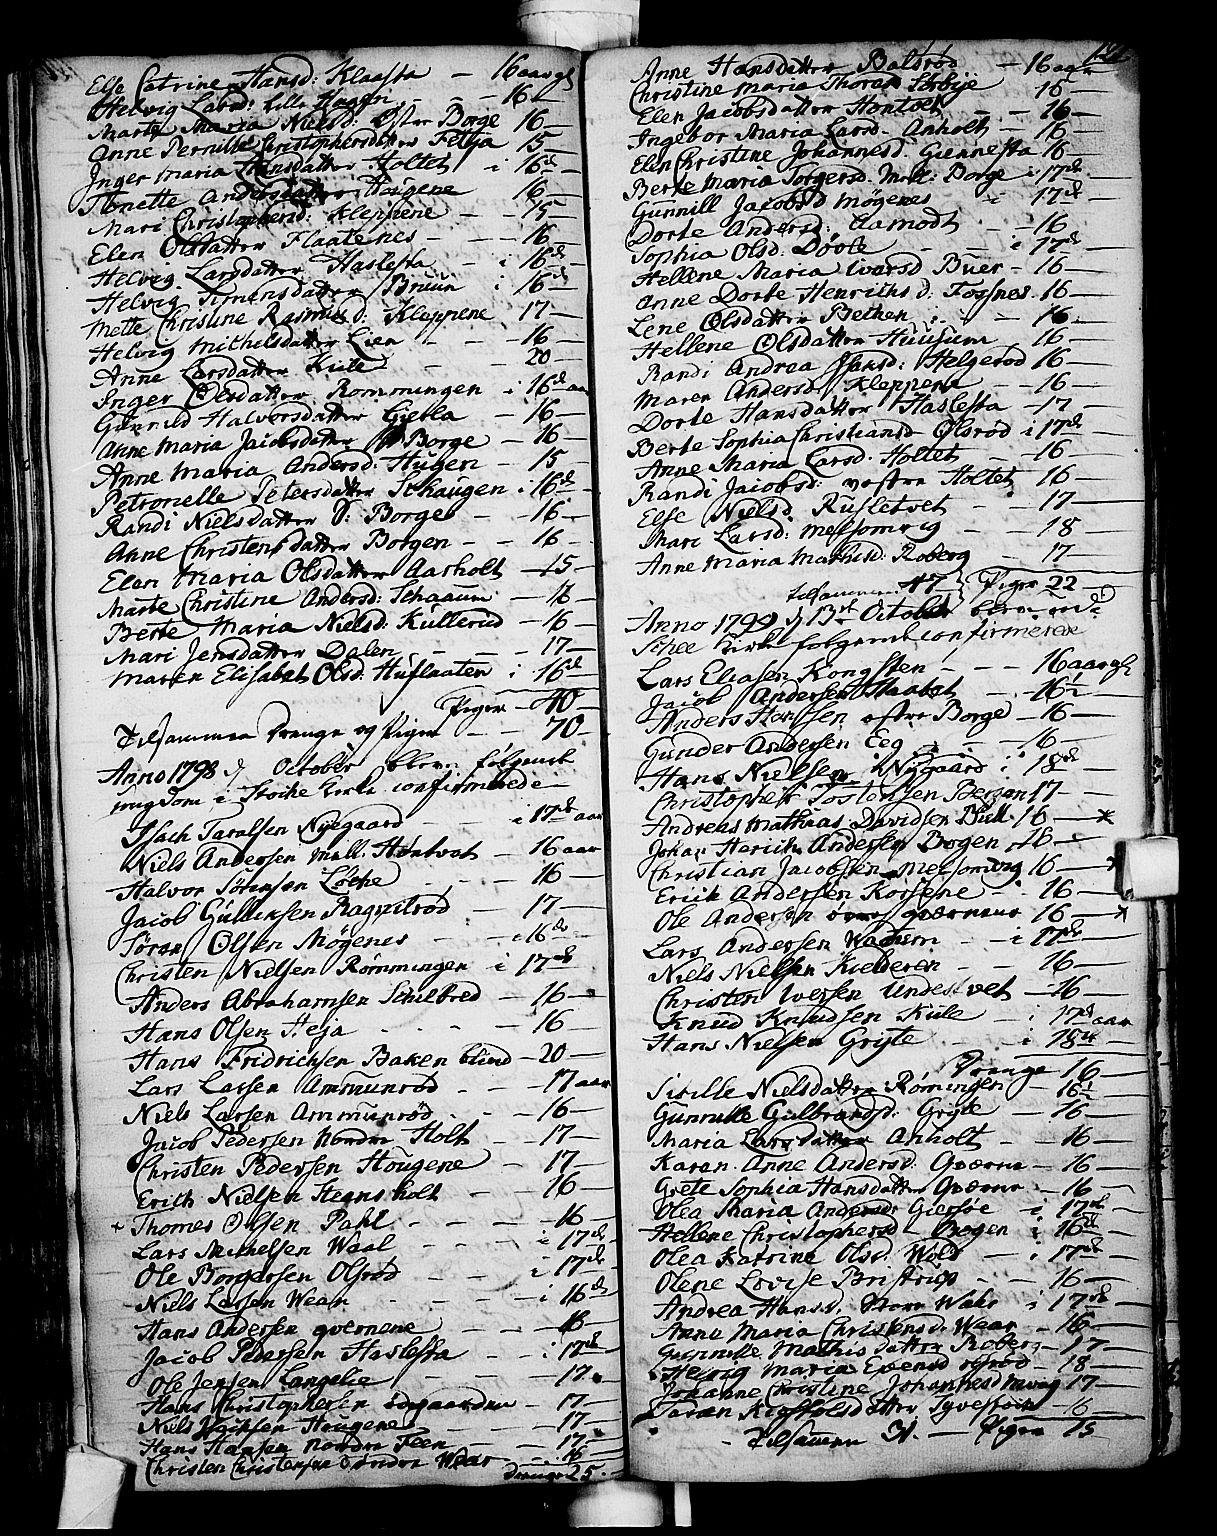 Else Catrine Hansd: Klaasta — 16 aar gl
Helvig Larsd: lille Hagen — 16 —
Marte Maria Nielsd: Øster Borge 16 —
Anne Pernille Christophersdatter Feltja 15 —
Inger Maria Hansdatter Holtet i 16de
Anette Andersdatter Hougene 16 —
Mari Christophersd: Kleppene — 15 —
Elen Olsdatter Flaatenes — 16 —
Helvig Larsdatter Haslesta — i 16de
Helvig Simensdatter Bruun i 16de
Mette Christine Rasmusd: Kleppene 17 —
Helvig Michelsdatter Lien — 16 —
Anne Larsdatter Kiile — 20 —
Inger Olsdatter Rommingen i 16de aar
Gunnild Halvorsdatter Gietla — 16 —
Anne Maria Jacobsdatter Borge — 16 —
Anne Maria Andersd: Hugen — 15 —
Petronelle Petersdatter Schaugen i 16de
Randi Nielsdatter S: Borge — 16 —
Anne Christensdatter Borgen — 16 —
Elen Maria Olsdatter Aasholt — 15 —
Marte Christine Andersd: Schaaum — 16 —
Berte Maria Nielsd: Kullerud — 16 —
Mari Jensdatter Dalen — 17 —
Maren Elisabet Olsd: Huflaaten i 16de
Piger — 40 —
Tilsammen Drenge og Piger — 70 —
Anno 1798 d October blev følgende
ungdom i Stocke kirke confirmerede —
Isach Taralsen Nyegaard — i 17de aar
Niels Andersen mill: Hentvet — 16 aar
Halvor Sørensen Løcke 16 —
Jacob Gulliksen Ragnitrød — 17 —
Søren Olsen Møgenes — i 16de
Christen Nielsen Rømmingen i 17de
Anders Abrahamsen Schilbred — 16 —
Hans Olsen Heja — 16
Hans Fridrichsen Baken blind — 20 —
Lars Larsen Ammunrød — 17 aar
Niels Larsen Ammunrød — 16 —
Jacob Pedersen Nordre Holt — 17 —
Christen Pedersen Hougene — 17 —
Erich Nielsen Heansholt — 16 —
+ Thomes Olsen Pahl — 16 —
Lars Michelsen Waal — i 17de
Ole Borgersen Olsrød — i 17de
Niels Larsen Wear — i 16de
Hans Andersen qvernene — 16 —
Jacob Pedersen Haslesta — i 17de
Ole Jensen Langelie — 17 —
Hans Christophersen ødegaarden — 17 —
Niels Isachsen Hougene — 17 —
Hans Hansen nordre Feen — 17 —
Christen Christensen søndre Wear — 16
Drenge 25
Anne Hansdatter Balsrød — 16 aar
Christine Maria Thoras Sørbye 16 —
Elen Jacobsdatter Hentvet — 16 —
Ingebor Maria Larsd. Anholt — 16 —
Elen Christine Johannesd. Giennesta 16 —
Berte Maria Torgersd. mell: Borge i 17de
Gunnill Jacobsd Møgenes i 17de
Dorte Andersd: Aamodt — 16 —
Sophia Olsd. Døvle — i 17de
Hellene Maria Iversd Buer — 16 —
Anne Dorte Henrichsd: Fossnes 16 —
Lene Olsdatter Bethen — 16 —
Hellene Olsdatter Huusum 16 —
Randi Andrea Hansd: Helgerød 16 —
Maren Andersd Kleppene — 16 —
Dorte Hansdatter Haslesta — 17 —
Berte Sophia Christiansd Olsrød i 17de
Anne Maria Larsd. Holtet — 16 —
Randi Jacobsd: vestre Holtet 16 —
Else Nielsd. Rusletvet — 17 —
Mari Larsd: Melsomvig — 18 —
Anne Maria Mathisd: Roberg — 17 —
tilsammen 47 } Piger 22
Anno 1799 d 13de October bleve i
Stoche kirke følgende confirmerede
Lars Eliasen Kongsteen — 16 aar gl
Jacob Andersen Haabet — 16 1/2
Anders Hansen østre Borge — 16 —
Gunder Andersen Eeg — 16 —
Hans Nielsen Nygaard i 18de
Christopher Tostensen Bergan 17 —
Andreas Mathias Davidsen Bull 16 — ×
Johan Henrich Andersen Borgen 18 —
Christian Jacobsen Melsomvig 16 — ×
Erich Andersen Korsene — 16 —
Ole Andersen qværnene 16 — ×
Lars Andersen Wachum — i 17de
Niels Nielsen Kielderen — 16 —
Christen Iversen Undestvet — 16 —
Knud Knudsen Kiile — i 17de aar
Hans Nielsen Grytte — i 18de
Drenge 16 —
Siselle Nielsdatter Rømingen — 16 1/2
Gunnille Gulbrandsd: Grytte — 16 —
Maria Larsdatter Anholt — 16 —
Karen Anne Andersd. Qværne — 16 —
Grete Sophia Hansdatter Qværne — 16 —
Olea Maria Andersd: Giersøe i 17de
Hellene Christophersd. Bogen i 16de
Olea Katrine Olsd. Wold — i 17de
Olene Lovise Bristrup — 16 —
Andrea Hansd. Store Wahr i 17de
Anne Maria Christensd. Wear — 16 —
Gunnille Mathisdatter Roberg — 17 —
Helvig Maria Evensd ogsrød — 18 —
Johanne Christine Johannesd mvig 17 —
Taran Kiøstolsdatter Syvesteen — 16 —
Tilsamen 31. — Piger 15